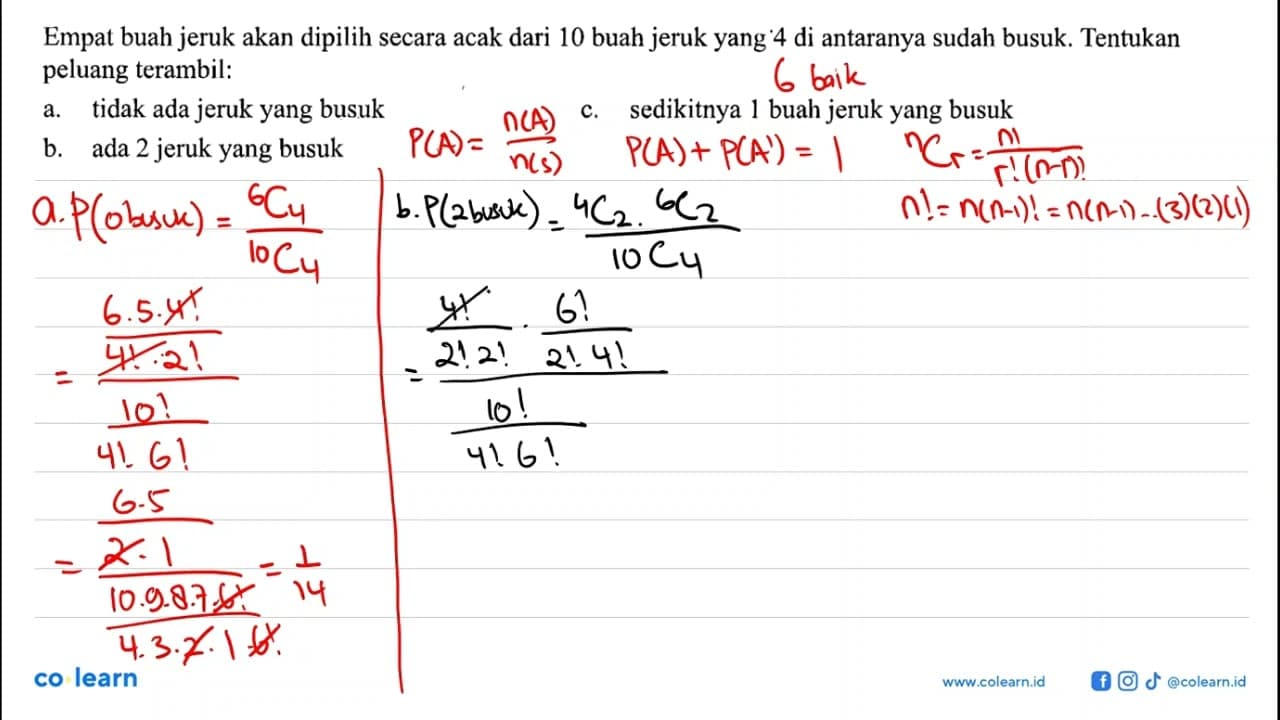 Empat buah jeruk akan dipilih secara acak dari 10 buah jeruk yang 4 di antaranya sudah busuk. Tentukan
peluang terambil:
6 baik
a. tidak ada jeruk yang busuk
c. sedikitnya 1 buah jeruk yang busuk
b. ada 2 jeruk yang busuk
P(A) = n(A) / n(S)
P(A) + P(A') = 1
nCr = n! / r!(n-r)!
n! = n(n-1)! = n(n-1)...(3)(2)(1)
a. P(0 busuk) = 6C4 / 10C4
= 6.5.4! / 4!.2!
10! / 4! 6!
= 6.5 / 2.1
10.9.8.7.6! / 4.3.2.1 6!
= 1/14
b. P(2 busuk) = 4C2 . 6C2 / 10C4
= 4! / 2! 2! . 6! / 2! 4!
10! / 4! 6!
co learn
www.colearn.id
@colearn.id